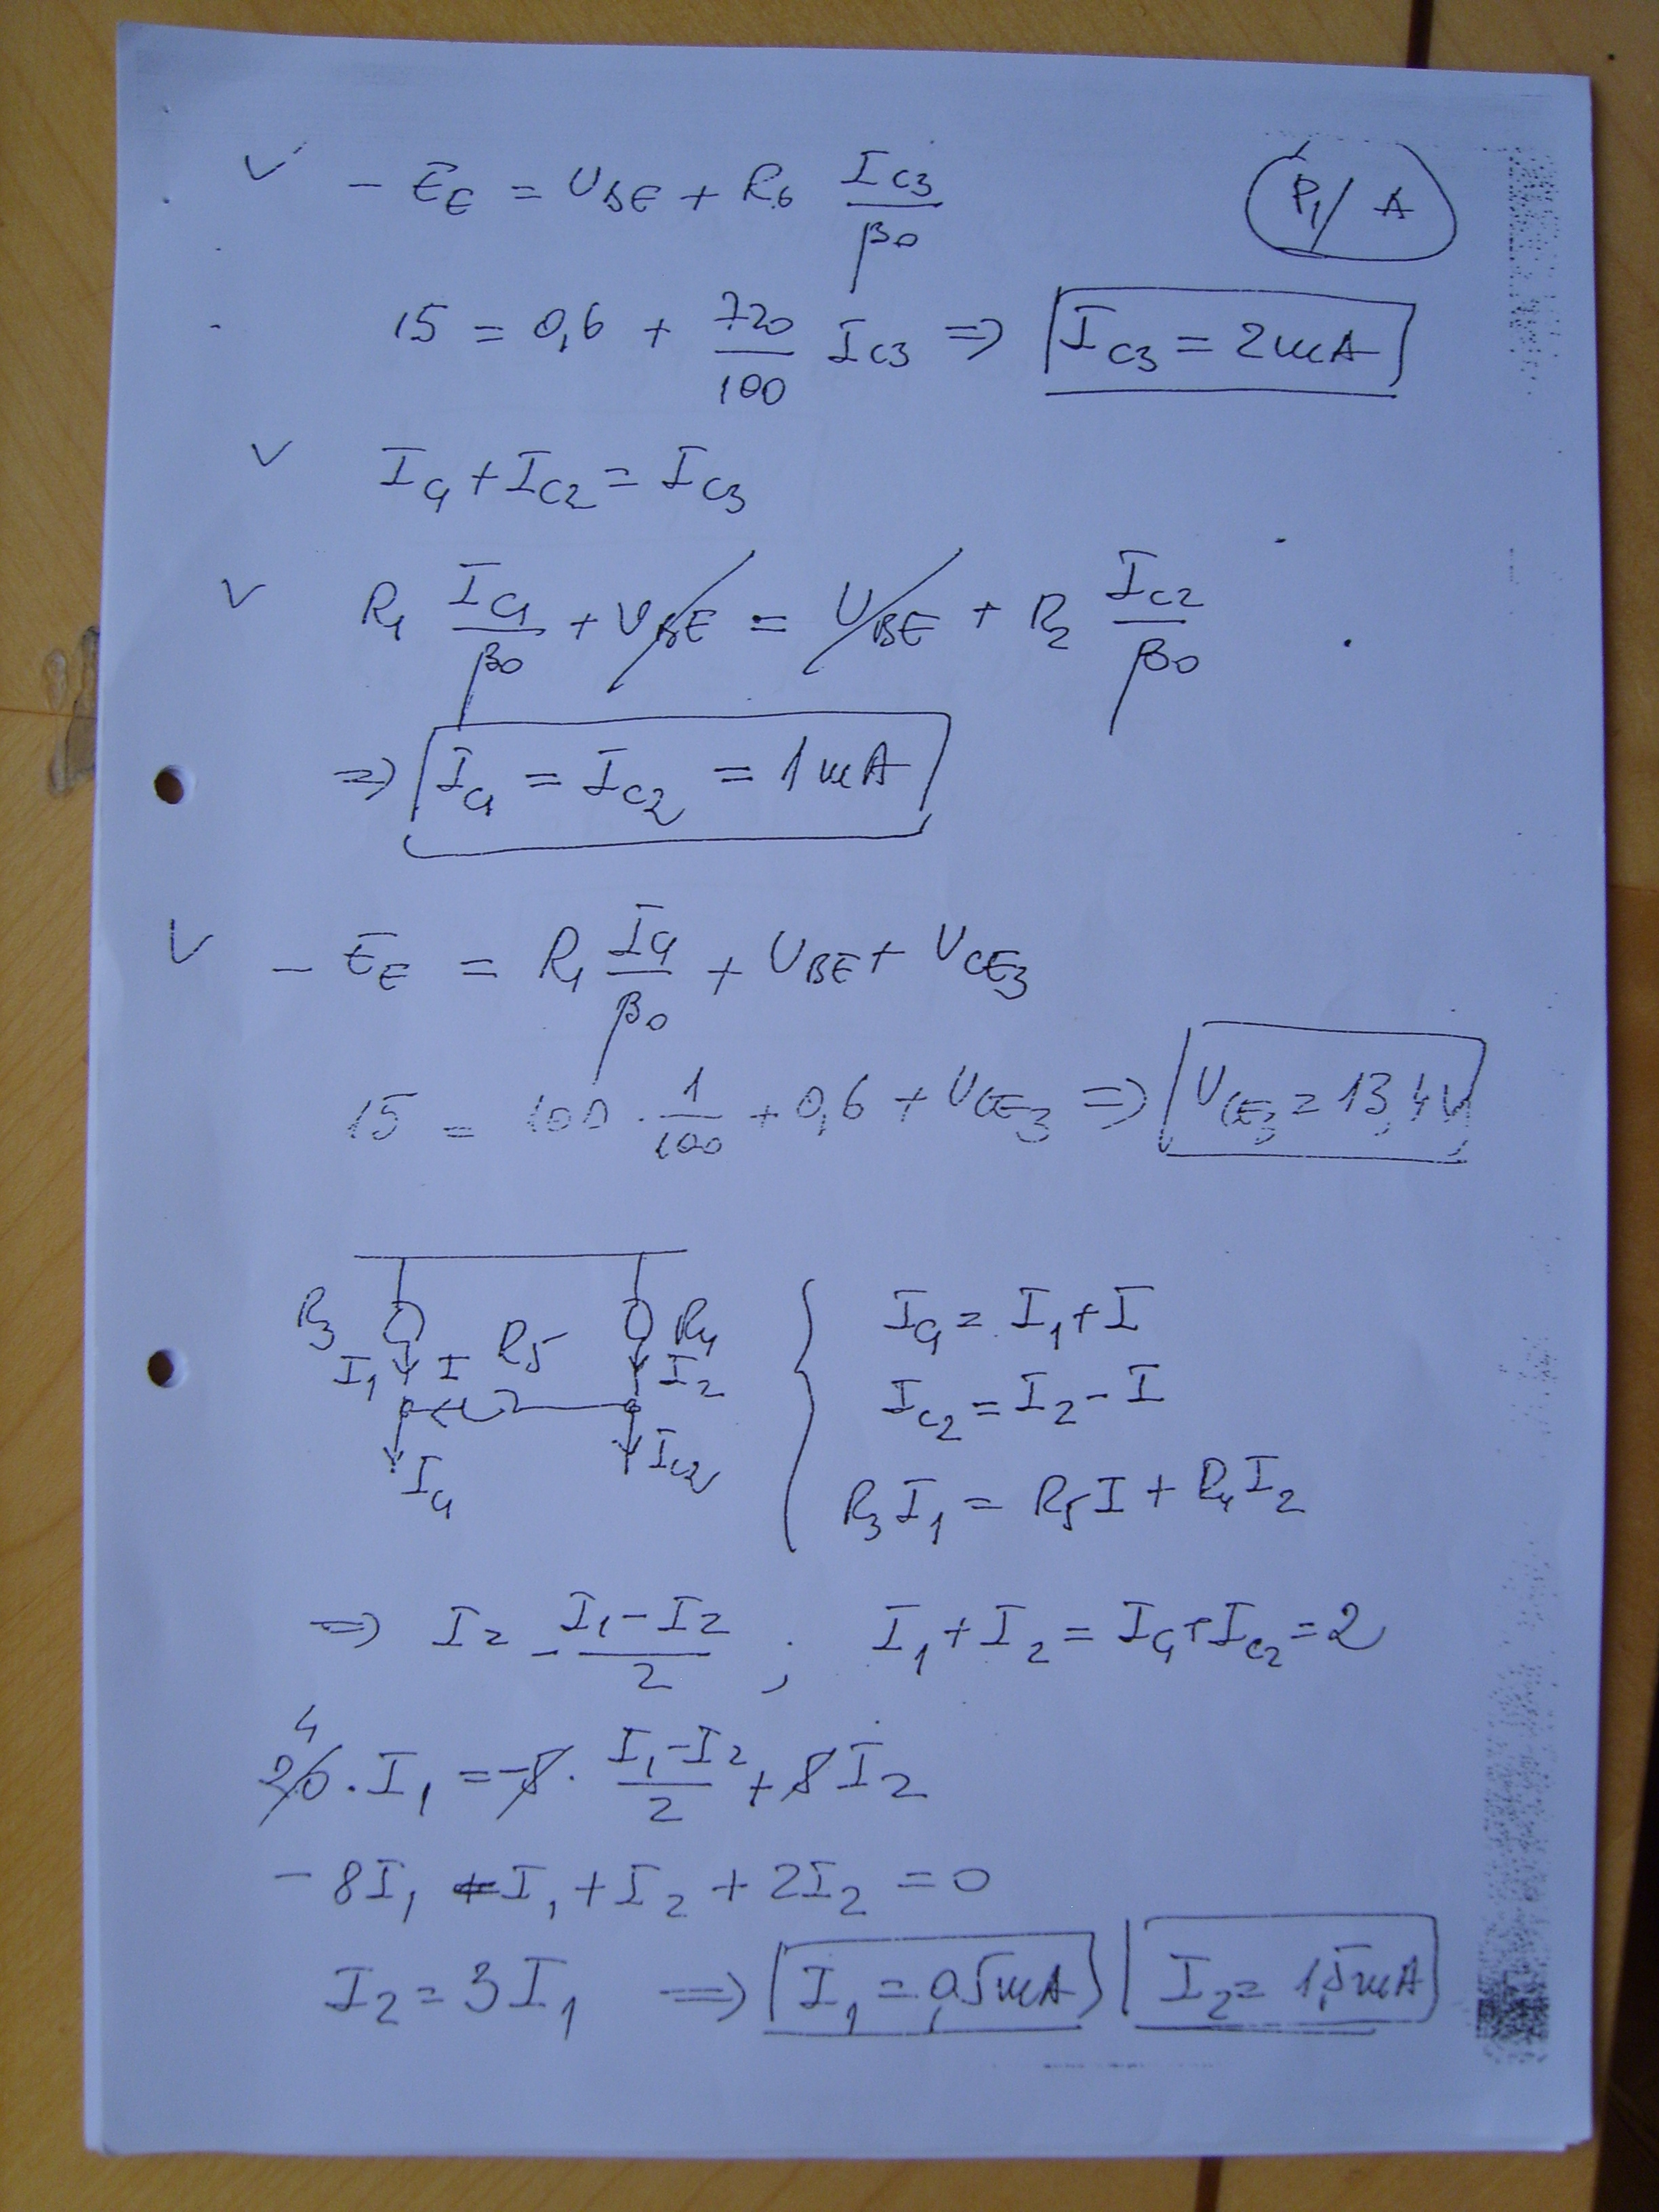 P1/A
- EE = UBE + R6 IC3/β0
15 = 0,6 + 720/100 IC3 => IC3 = 2mA
IC1 + IC2 = IC3
R1 IC1/β0 + UBE = UBE + R2 IC2/β0
=> IC1 = IC2 = 1mA
- EE = R1 IC1/β0 + UBE + UCE3
15 = 100 · 1/100 + 0,6 + UCE3 => UCE3 = 13,4V
R3 R5 R4
I1 I I2
IC1 IC2
IC1 = I1 + I
IC2 = I2 - I
R3 I1 = R5 I + R4 I2
=> I = - I1 - I2/2 ; I1 + I2 = IC1 + IC2 = 2
4
· I1 = -8 · I1 - I2/2 + 8 I2
- 8I1 - I1 + I2 + 2I2 = 0
I2 = 3 I1 => I1 = 0,5mA I2 = 1,5mA